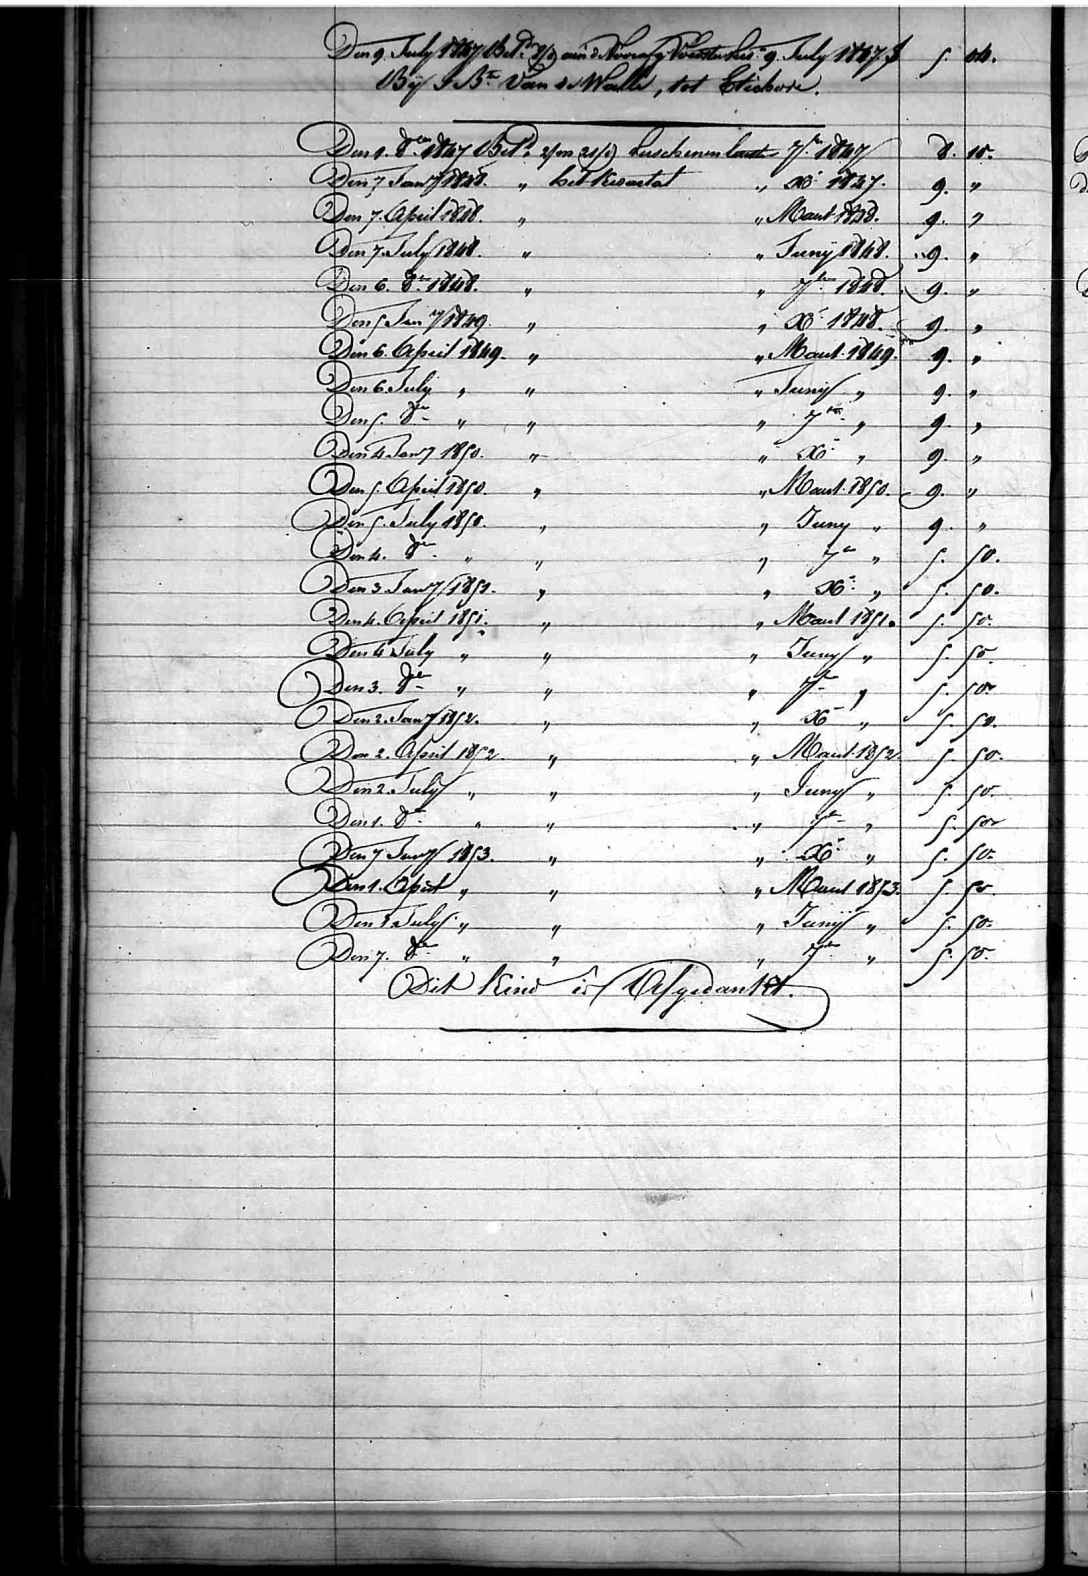 Den 9 July 1847 Bet.d 9 July 1847 f 5. 04.
Bij J. Bte Van de Walle, tot Etichove.
Den 1. 8ber 1847 Betd. 2/m 21/d verschenen laatst 7ber 1847 8. 10.
Den 7 Jany 1848. „ het kwartal „ Xr 1847. 9. „
Den 7. April 1848. „ „ Maart 1848. 9. „
Den 7. July 1848. „ „ Junij 1848. 9. „
Den 6. 8ber 1848. „ „ 7ber 1848. 9. „
Den 5 Jany 1849. „ „ Xr 1848. 9. „
Den 6. April 1849. „ „ Maart 1849. 9. „
Den 6 July „ „ „ Junij „ 9. „
Den 5. 8ber „ „ „ 7ber „ 9. „
Den 4 Jany 1850. „ „ Xr „ 9. „
Den 5. April 1850. „ „ Maart 1850. 9. „
Den 5. July 1850. „ „ Juny „ 9. „
Den 4. 8ber „ „ „ 7ber „ 5. 50.
Den 3 Jany 1851. „ „ Xr „ 5. 50.
Den 4. April 1851. „ „ Maart 1851. 5. 50.
Den 4 July „ „ „ Juny „ 5. 50.
Den 3. 8ber „ „ „ 7ber „ 5. 50
Den 2. Jany 1852. „ „ Xr „ 5. 50.
Den 2. April 1852. „ „ Maart 1852. 5. 50.
Den 2. July „ „ „ Juny „ 5. 50.
Den 1. 8ber „ „ „ 7ber „ 5. 50
Den 7 Jany 1853. „ „ Xr „ 5. 50.
Den 1. April „ „ „ Maart 1853. 5. 50.
Den 1 July „ „ „ Junij „ 5. 50.
Den 7. 8ber „ „ „ 7ber „ 5. 50.
Dit Kind is Afgedankt.